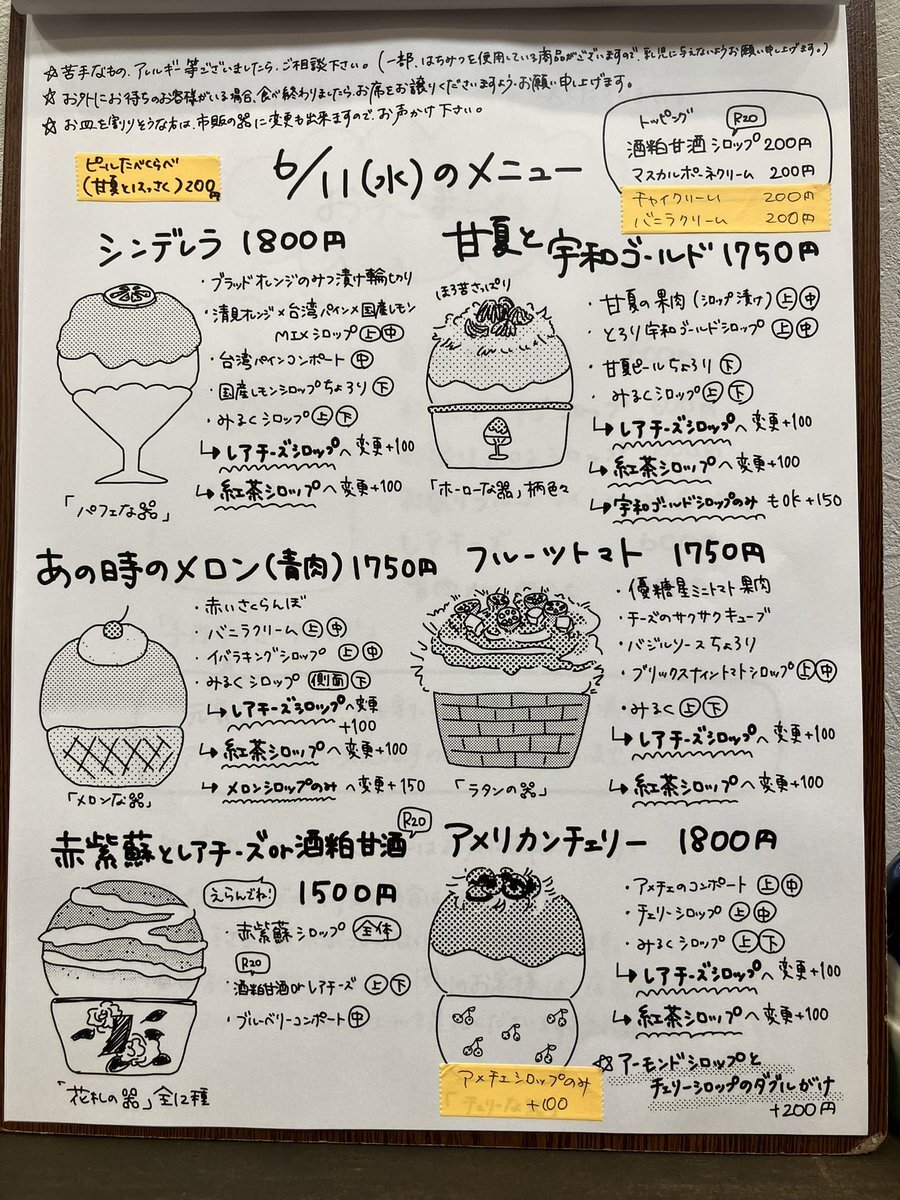 ☆ 苦手なもの、アレルギー等ございましたら、ご相談下さい。(一部、はちみつを使用している商品がございますので、乳児に与えないようお願い申し上げます。)
☆ お外にお待ちのお客様がいる場合、食べ終わりましたらお席をお譲りくださいますよう、お願い申し上げます。
☆ お皿を割りそうな方は、市販の器に変更も出来ますので、お声かけ下さい。
ピールたべくらべ
(甘夏とはっさく)200円
6/11(水)のメニュー
トッピング
R20
酒粕甘酒シロップ 200円
マスカルポーネクリーム 200円
チャイクリーム 200円
バニラクリーム 200円
シンデレラ 1800円
・ブラッドオレンジのみつ漬け輪切り
・清見オレンジ×台湾パイン×国産レモン
MIXシロップ 上 中
・台湾パインコンポート 中
・国産レモンシロップちょろり 下
・みるくシロップ 上 下
↳レアチーズシロップへ変更+100
↳紅茶シロップへ変更+100
「パフェな器」
甘夏と宇和ゴールド 1750円
ほろ苦さっぱり
・甘夏の果肉(シロップ漬け) 上 中
・とろり宇和ゴールドシロップ 上 中
・甘夏ピールちょろり 下
・みるくシロップ 上 下
↳レアチーズシロップへ変更+100
↳紅茶シロップへ変更+100
↳宇和ゴールドシロップのみもOK+150
「ホーローな器」柄色々
あの時のメロン(青肉) 1750円
・赤いさくらんぼ
・バニラクリーム 上 中
・イバラキングシロップ 上 中
・みるくシロップ 側面 下
↳レアチーズシロップへ変更
+100
↳紅茶シロップへ変更+100
↳メロンシロップのみへ変更+150
「メロンな器」
フルーツトマト 1750円
・優糖星ミニトマト果肉
・チーズのサクサクキューブ
・バジルソースちょろり
・ブリックスナイントマトシロップ 上 中
・みるく 上 下
↳レアチーズシロップへ変更+100
↳紅茶シロップへ変更+100
「ラタンの器」
赤紫蘇とレアチーズor酒粕甘酒 R20
えらんでね! 1500円
・赤紫蘇シロップ 全体
R20
・酒粕甘酒orレアチーズ 上 下
・ブルーベリーコンポート 中
「花札の器」全12種
アメリカンチェリー 1800円
・アメチェのコンポート 上 中
・チェリーシロップ 上 中
・みるくシロップ 上 下
↳レアチーズシロップへ変更+100
↳紅茶シロップへ変更+100
☆アーモンドシロップと
チェリーシロップのダブルがけ
+200円
アメチェシロップのみ
+100